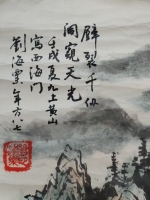 劈裂千仞
洞窥天光
壬戌夏九上黄山
写西海门
劉海粟年方八七